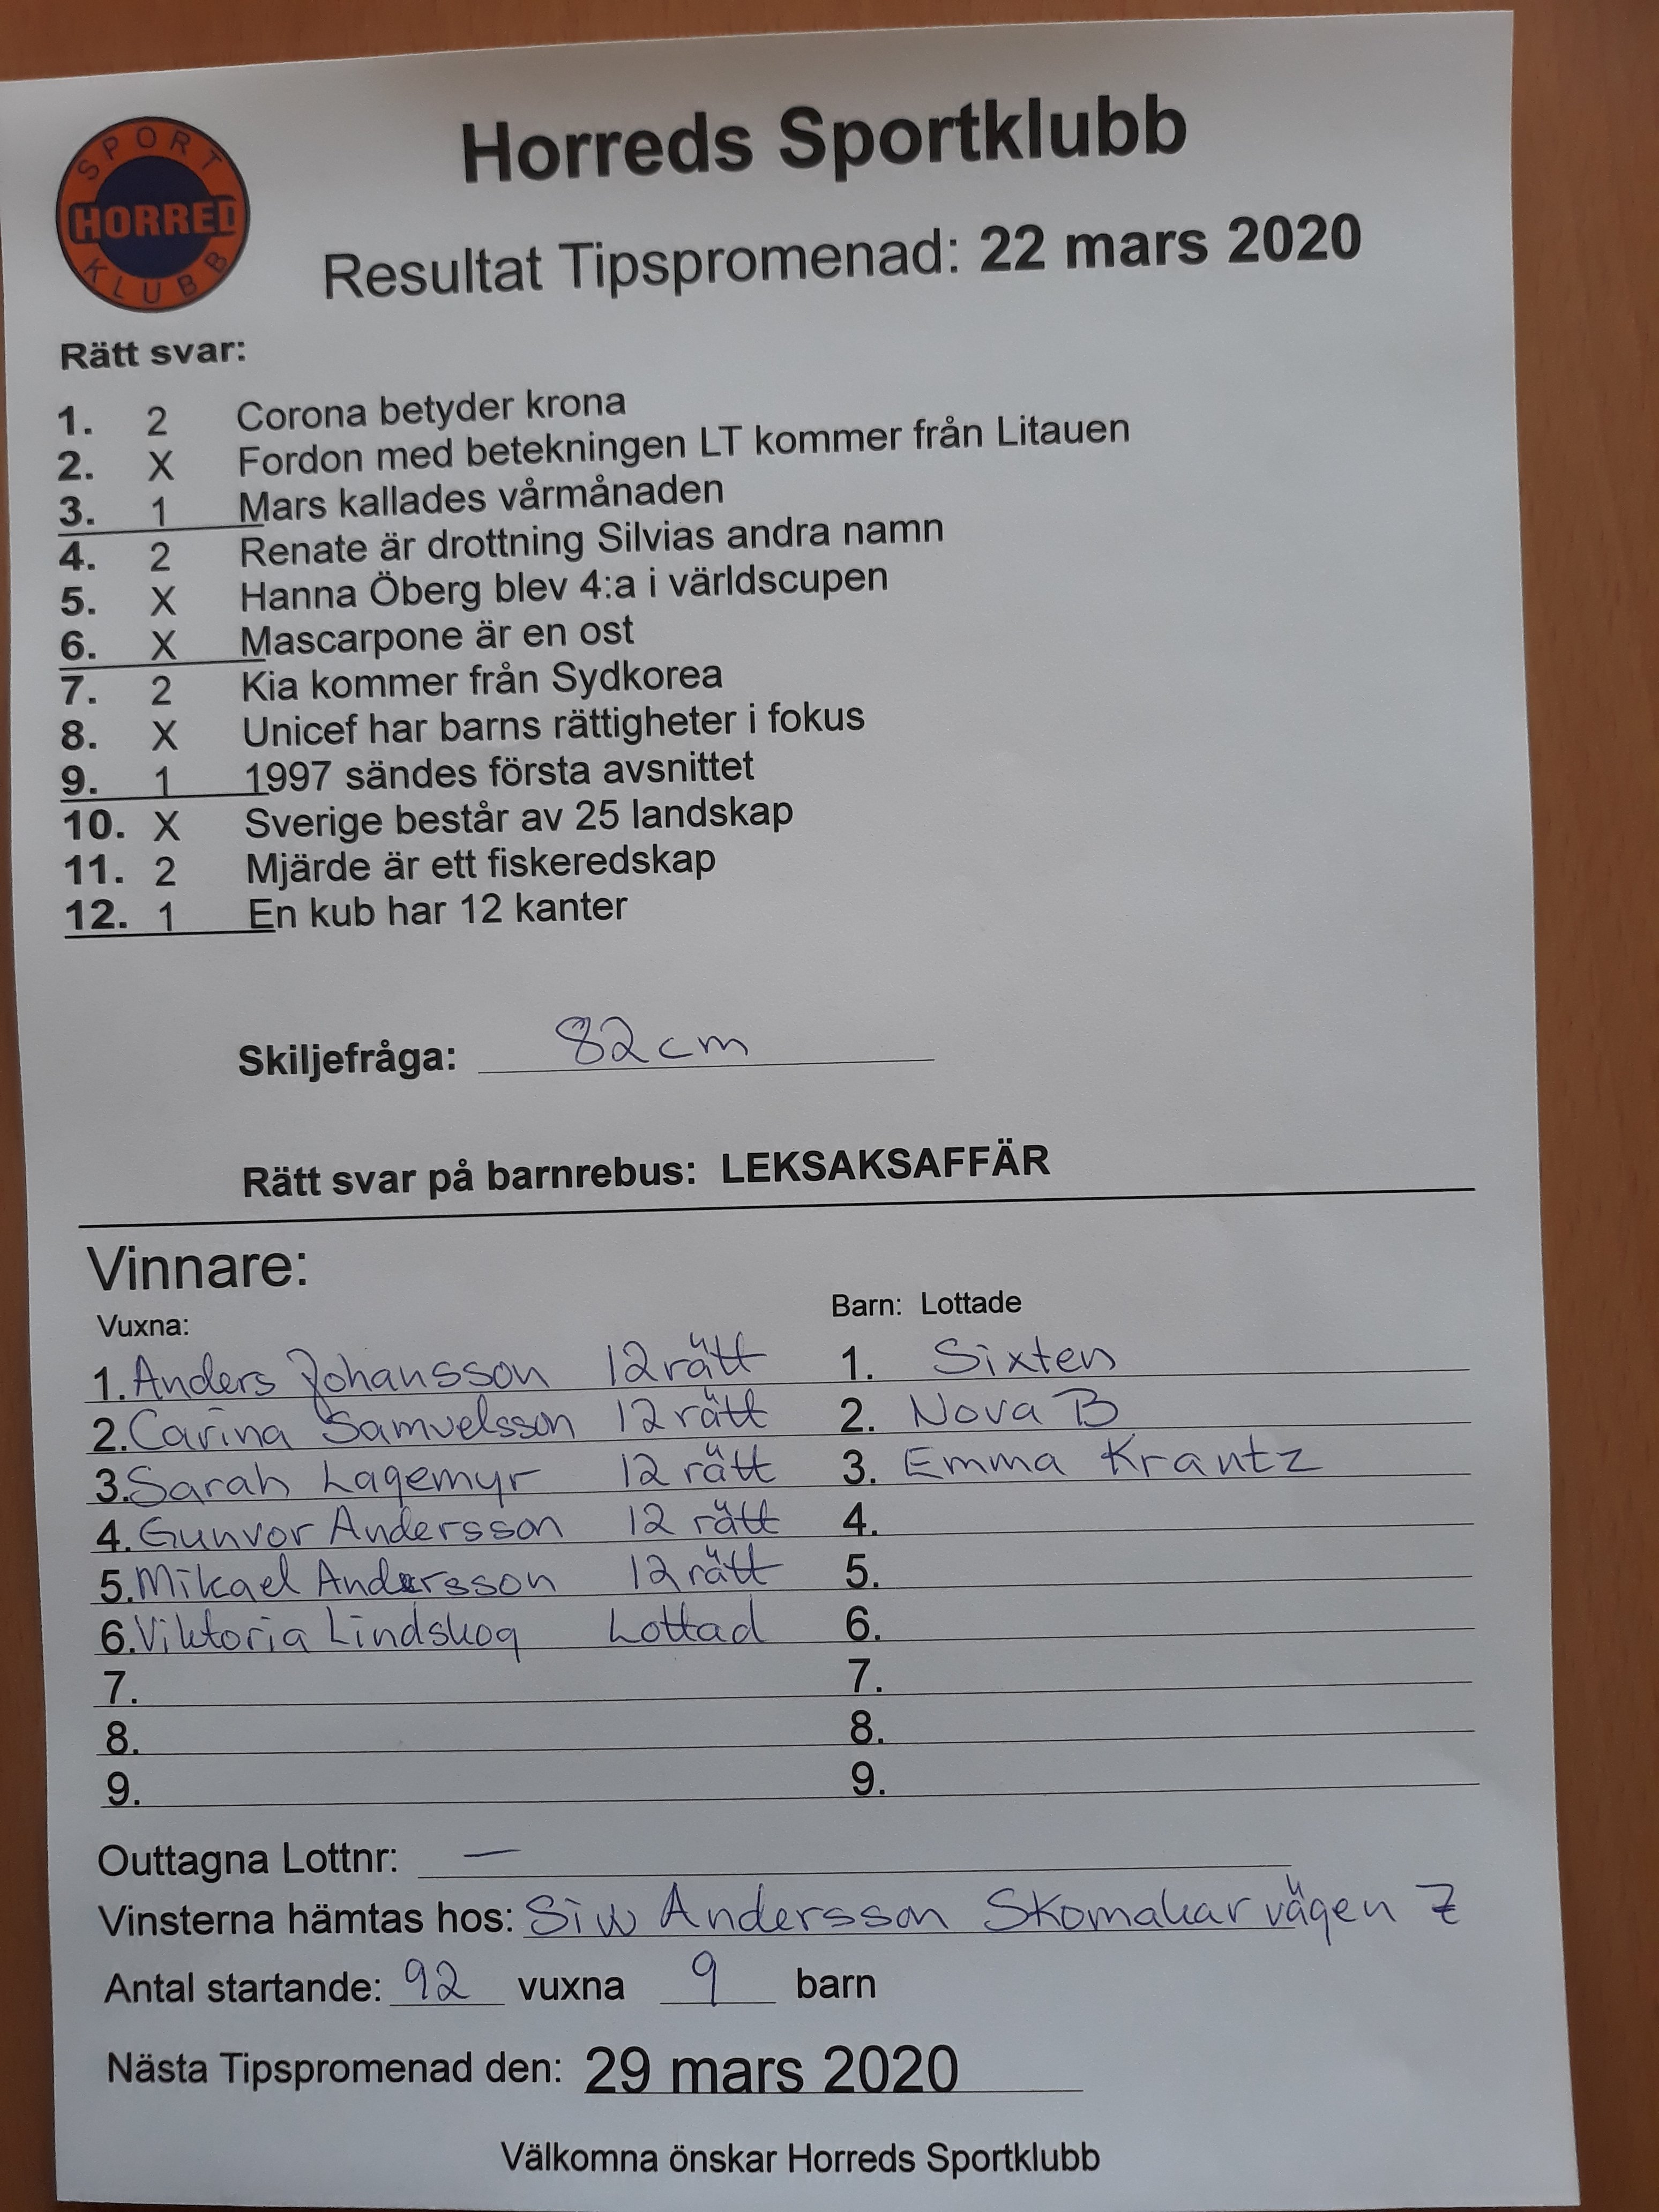 SPORT
HORRED
KLUBB
Horreds Sportklubb
Resultat Tipspromenad: 22 mars 2020
Rätt svar:
1. 2 Corona betyder krona
2. X Fordon med betekningen LT kommer från Litauen
3. 1 Mars kallades vårmånaden
4. 2 Renate är drottning Silvias andra namn
5. X Hanna Öberg blev 4:a i världscupen
6. X Mascarpone är en ost
7. 2 Kia kommer från Sydkorea
8. X Unicef har barns rättigheter i fokus
9. 1 1997 sändes första avsnittet
10. X Sverige består av 25 landskap
11. 2 Mjärde är ett fiskeredskap
12. 1 En kub har 12 kanter
Skiljefråga: 82 cm
Rätt svar på barnrebus: LEKSAKSAFFÄR
Vinnare:
Vuxna: Barn: Lottade
1. Anders Johansson 12 rätt 1. Sixten
2. Carina Samuelsson 12 rätt 2. Nova B
3. Sarah Lagemyr 12 rätt 3. Emma Krantz
4. Gunvor Andersson 12 rätt 4.
5. Mikael Andersson 12 rätt 5.
6. Viktoria Lindskog Lottad 6.
7. 7.
8. 8.
9. 9.
Outtagna Lottnr: —
Vinsterna hämtas hos: Siw Andersson Skomakarvägen 7
Antal startande: 92 vuxna 9 barn
Nästa Tipspromenad den: 29 mars 2020
Välkomna önskar Horreds Sportklubb